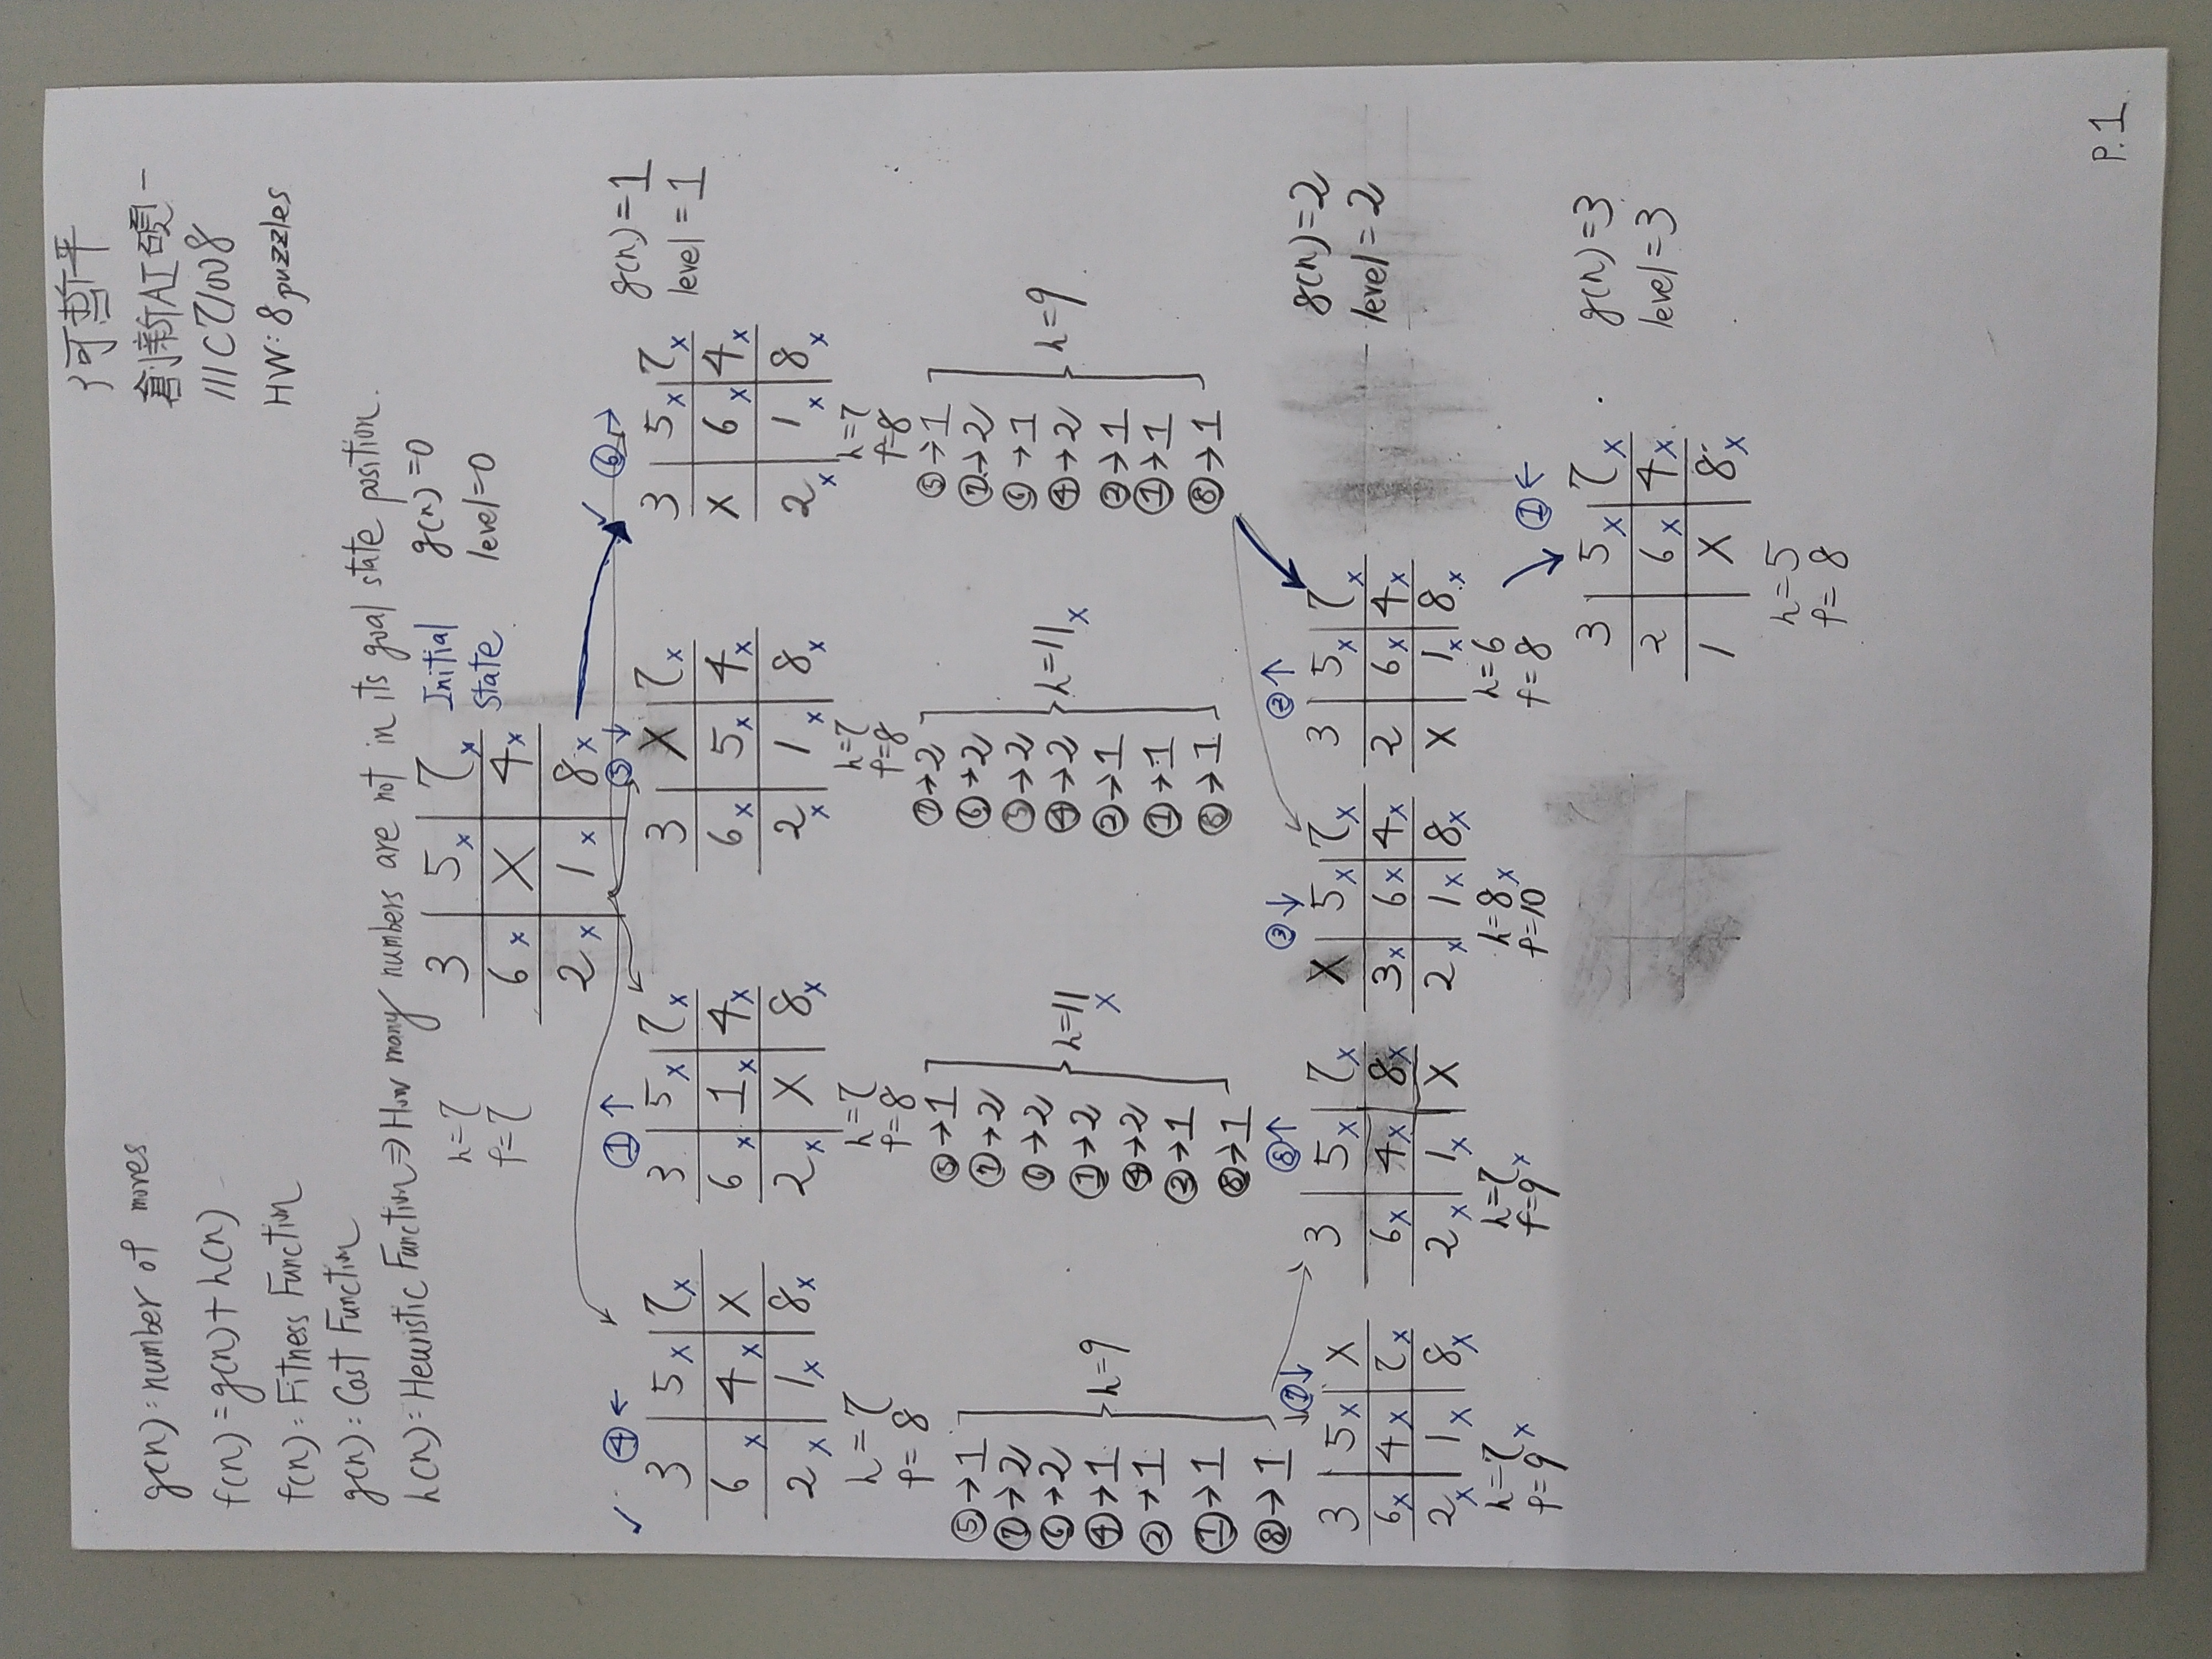 何哲平
創新AI碩一
111C71008
HW: 8 puzzles
g(n): number of moves
f(n)=g(n)+h(n)
f(n): Fitness Function
g(n): Cost Function
h(n): Heuristic Function ⇒ How many numbers are not in its goal state position.
h=7
f=7
3 5x 7x
6x X 4x
2x 1x 8x
Initial
state
g(n)=0
level=0
✓ ④ ←
3 5x 7x
6x 4x X
2x 1x 8x
h=7
f=8
① ↑
3 5x 7x
6x 1x 4x
2x X 8x
h=7
f=8
⑤ ↓
3 X 7x
6x 5x 4x
2x 1x 8x
h=7
f=8
✓ ⑥ →
3 5x 7x
X 6x 4x
2x 1x 8x
h=7
f=8
g(n)=1
level=1
⑤→1
⑦→2
⑥→2
④→1
②→1
①→1
⑧→1
h=9
⑤→1
⑦→2
⑥→2
①→2
④→2
②→1
⑧→1
h=11
x
⑦→2
⑥→2
⑤→2
④→2
②→1
①→1
⑧→1
h=11x
⑤→1
⑦→2
⑥→1
④→2
②→1
①→1
⑧→1
h=9
⑦↓
3 5x X
6x 4x 7x
2x 1x 8x
h=7
f=9x
⑧↑
3 5x 7x
6x 4x 8x
2x 1x X
h=7
f=9x
③↓
X 5x 7x
3x 6x 4x
2x 1x 8x
h=8x
f=10
②↑
3 5x 7x
2 6x 4x
X 1x 8x
h=6
f=8
g(n)=2
level=2
①←
3 5x 7x
2 6x 4x
1 X 8x
h=5
f=8
g(n)=3
level=3
P.1